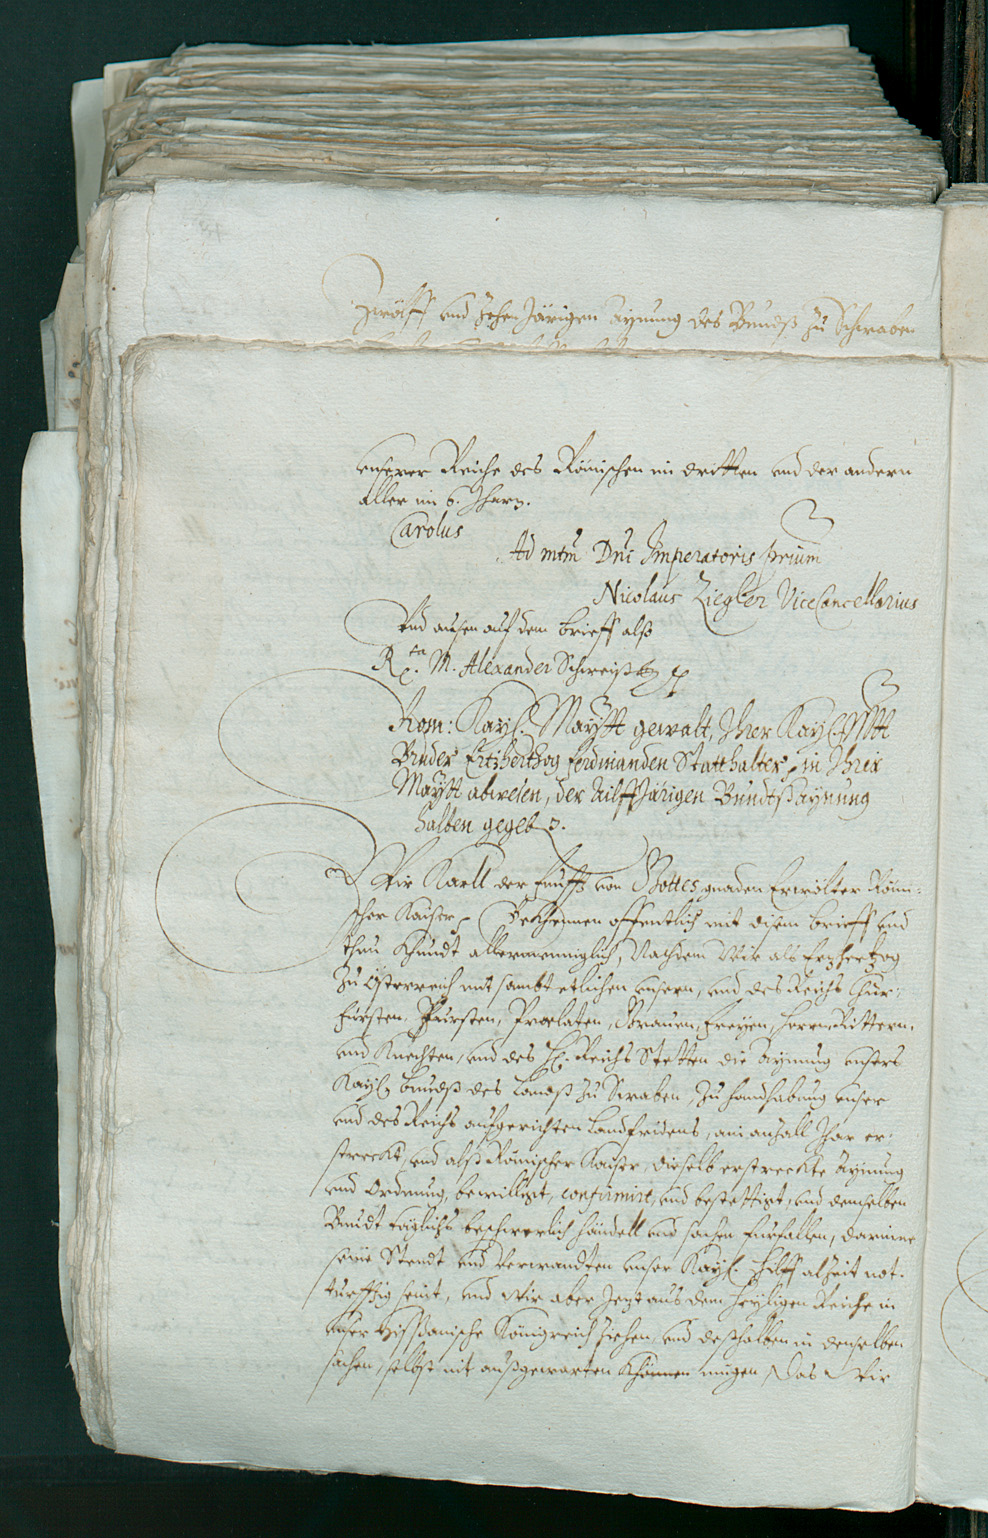 Zwölff und Zehen Järigen aynung des Bundß zu Schwaben
unserer Reiche des Römischen im dritten und der andern
aller im 6. Jharn.
Carolus
Ad mtm Dni Imperatoris prium
Nicolaus Ziegler ViceCancellarius
Und aussen auf dem brieff alß
Rta. M. Alexander Schweiß
Rom: Kayß. Maytt gewalt, Jhrer Kayß. Mtt
Bruder Ertzhertzog Ferdinanden Statthalter, in Jhrer
Maytt abwesen, der Ailff Järigen Bundtßaynung
halben gegeben.
Wir Karll der Funfft von Gottes gnaden Erwölter Römi-
scher Kaiser, Bekhennen offentlich mit disem brieff und
thun khundt allermenniglich, Nachdem Wir als Erzhertzog
zu Österreich mit sambt etlichen unsern, und des Reichs Chur-
fürsten, Fürsten, Praelaten, Grauen, Freyen, Herrn, Rittern,
und Knechten, und des H. Reichs Stetten die Aynung unsers
Kayß. bundß des Landß zu Swaben, zu handhabung unser
und des Reichs aufgerichten Landfridens, ain anzall Jhar er-
streckt, und alß Römischer Kaiser, dieselb erstreckte Aynung
und Ordnung, bewilligt, confirmirt, und bestettigt, und demselben
Bundt täglichs beschwerlich händell und sachen furfallen, darinne
seine Stendt und verwandten unser Kayß. hilff alzeit not-
turfftig seint, und Wir aber Jezt aus dem heyligen Reiche in
unser Hispanische Königreich ziehen, und deßhalben in denselben
sachen, selbst nit außgewarten khönnen mügen, Das Wir